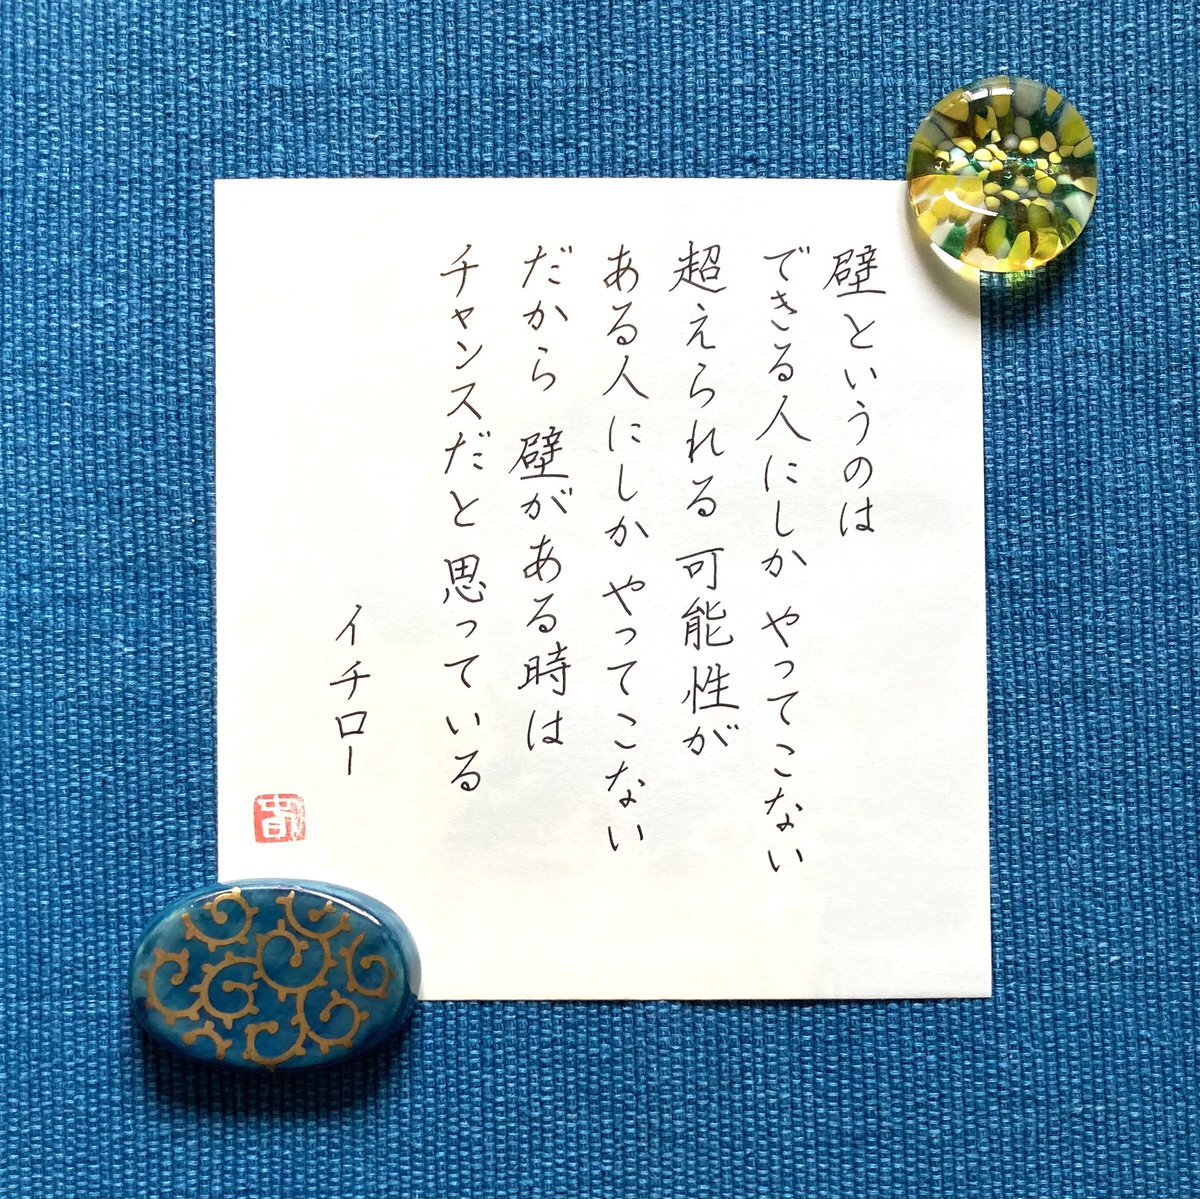 壁というのは
できる人にしか やってこない
超えられる 可能性が
ある人にしか やってこない
だから 壁がある時は
チャンスだと 思っている
イチロー